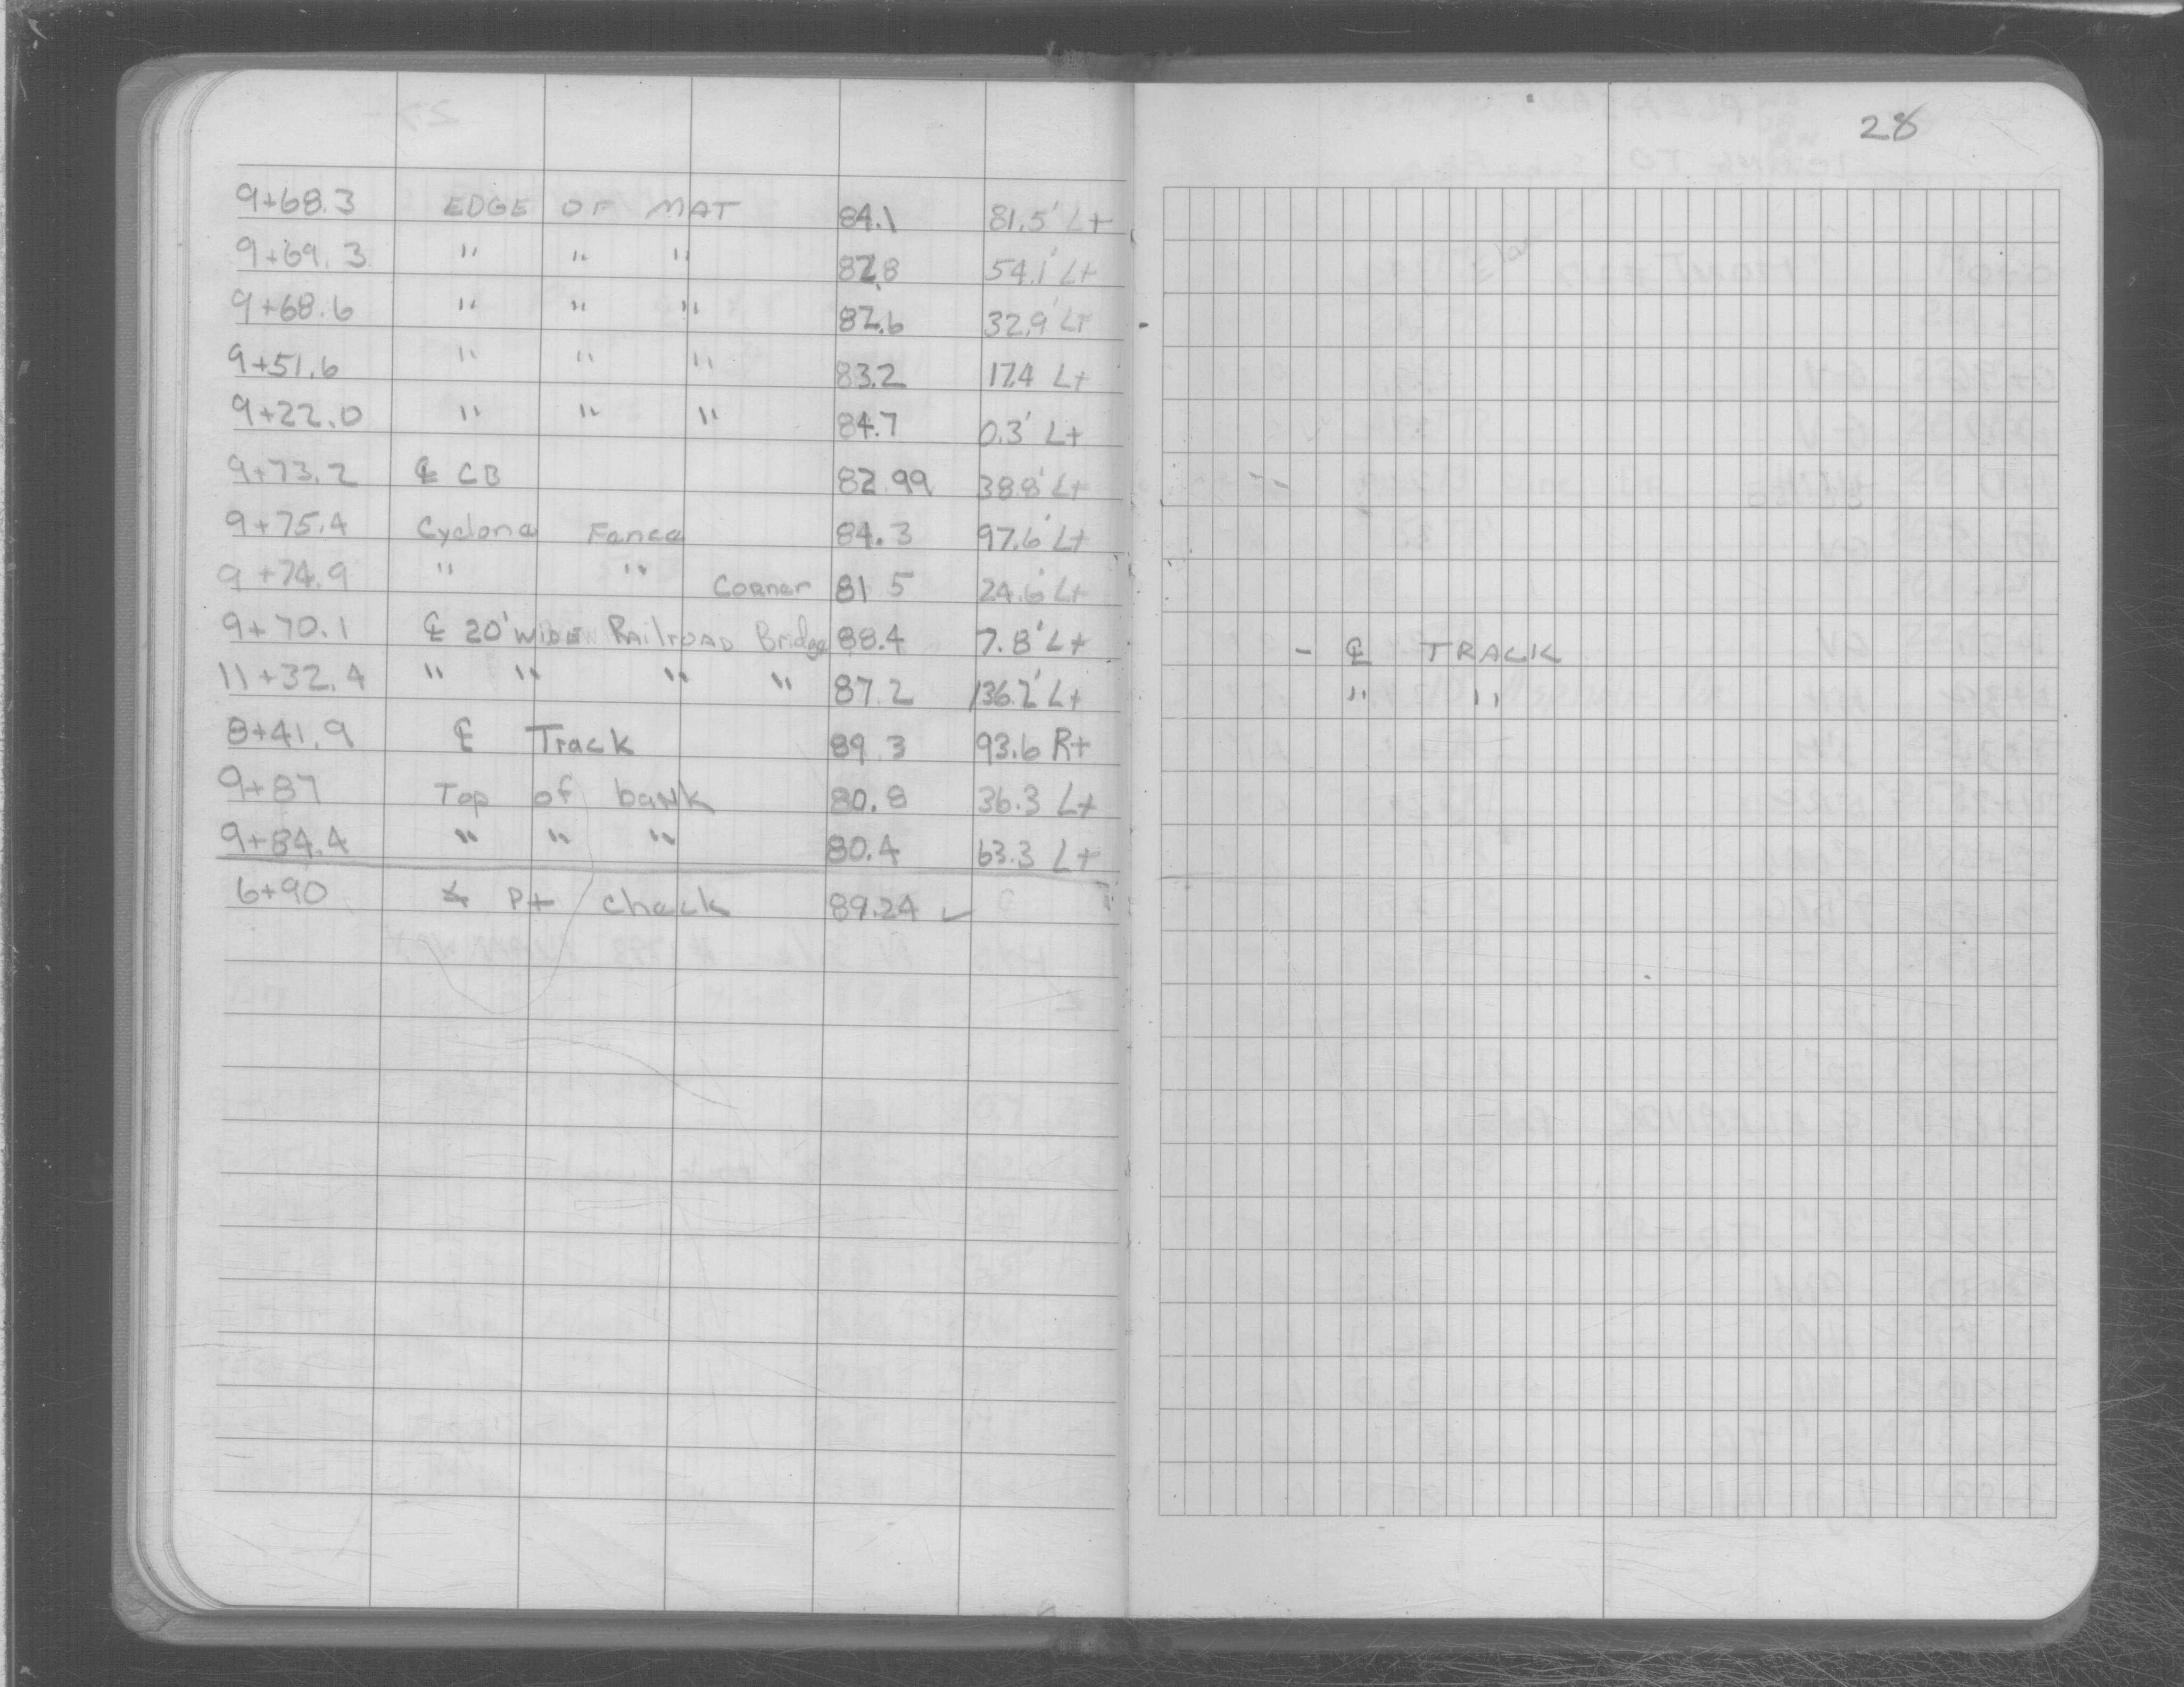 28
9+68.3 EDGE OF MAT 84.1 81.5' Lt
9+69.3 " " " 82.8 54.1' Lt
9+68.6 " " " 82.6 32.9' Lt
9+51.6 " " " 83.2 17.4 Lt
9+22.0 " " " 84.7 0.3' Lt
9+73.2 ℄ CB 82.99 38.8' Lt
9+75.4 Cyclone Fence 84.3 97.6' Lt
9+74.9 " " Corner 81.5 24.6' Lt
9+70.1 ℄ 20' WIDE RAILROAD Bridge 88.4 7.8' Lt - ℄ TRACK
11+32.4 " " " " 87.2 136.2' Lt " "
8+41.9 ℄ Track 89.3 93.6 Rt
9+87 Top of bank 80.8 36.3 Lt
9+84.4 " " " 80.4 63.3 Lt
6+90 ∡ Pt check 89.24 ✓